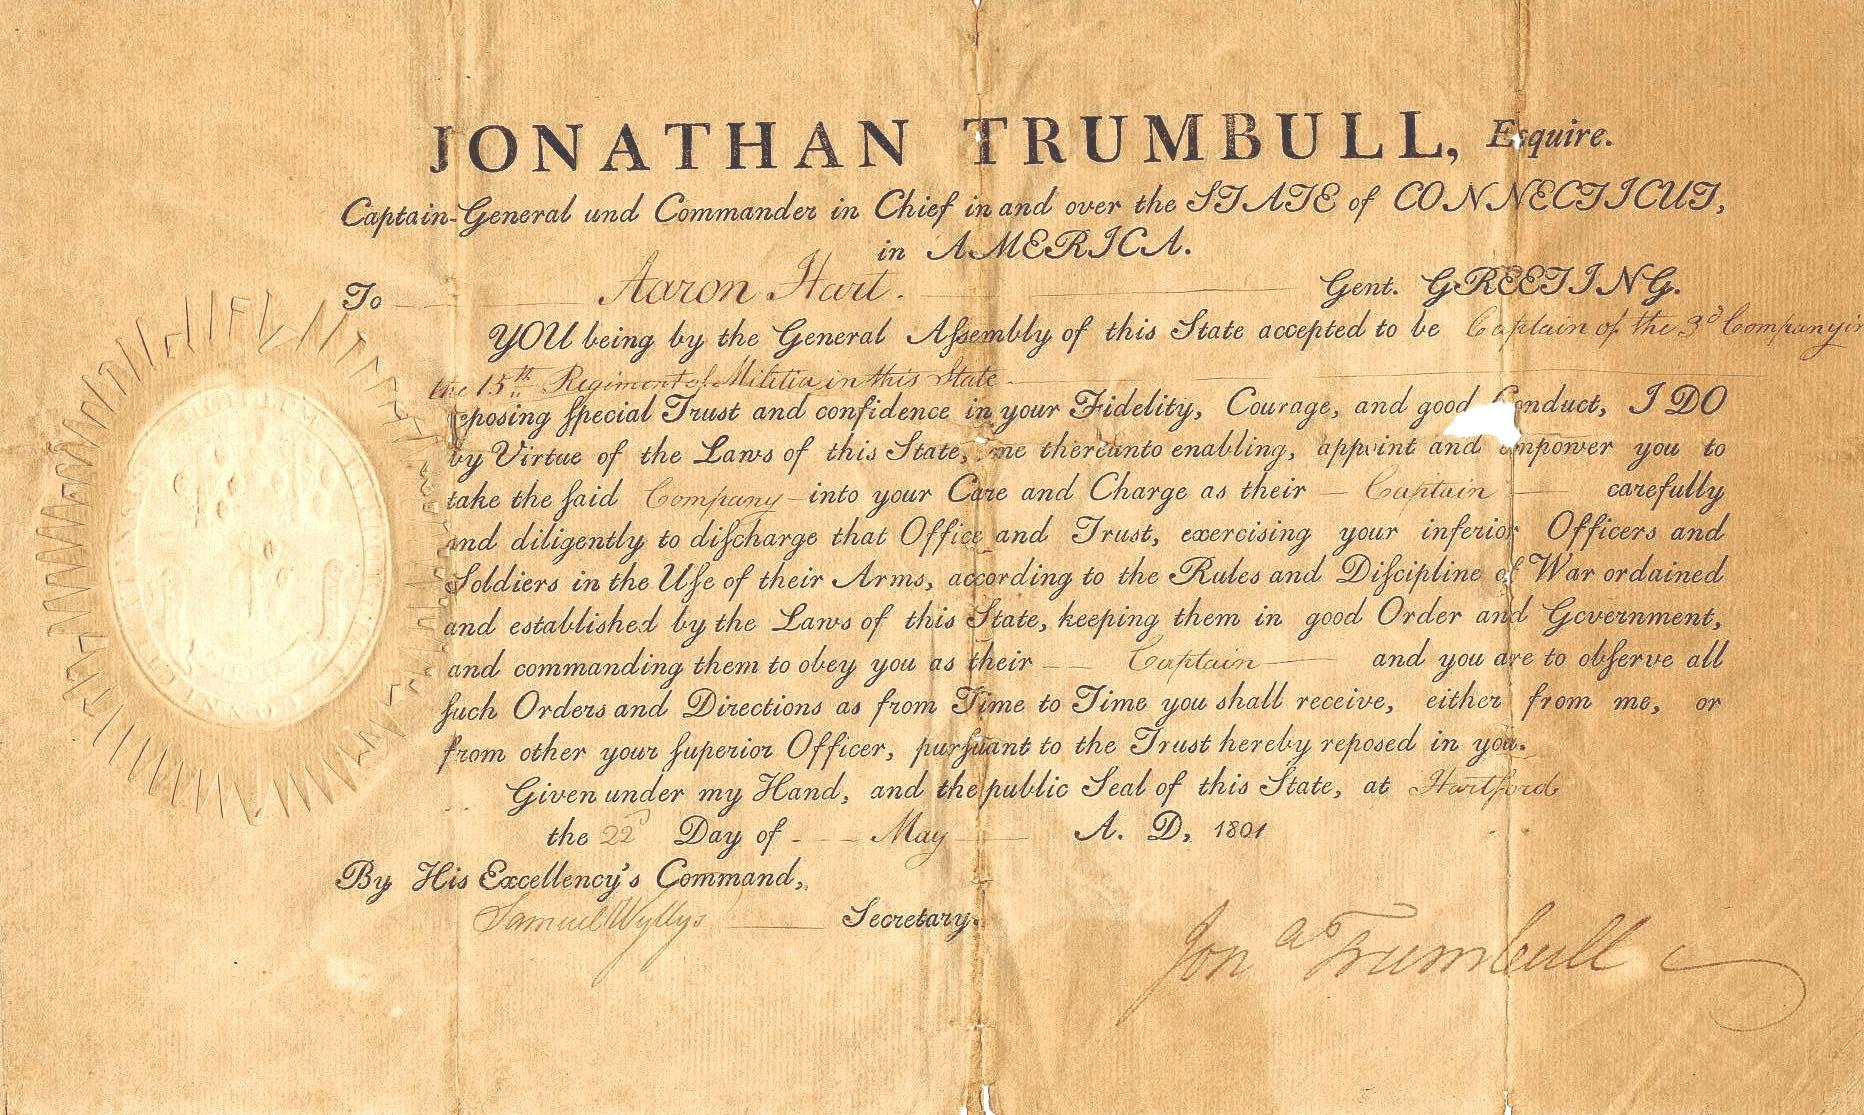 JONATHAN TRUMBULL, Esquire.
Captain-General und Commander in Chief in and over the STATE of CONNECTICUT,
in AMERICA.
To Aaron Hart. Gent. GREETING.
YOU being by the General Aſſembly of this State accepted to be Captain of the 3d Company in
the 15th Regiment of Militia in this State
reposing ſpecial Trust and confidence in your Fidelity, Courage, and good Conduct, I DO
by Virtue of the Laws of this State, me thereunto enabling, appoint and empower you to
take the ſaid Company into your Care and Charge as their Captain carefully
and diligently to diſcharge that Office and Trust, exercising your inferior Officers and
Soldiers in the Uſe of their Arms, according to the Rules and Diſcipline of War ordained
and established by the Laws of this State, keeping them in good Order and Government,
and commanding them to obey you as their Captain and you are to obſerve all
ſuch Orders and Directions as from Time to Time you shall receive, either from me, or
from other your ſuperior Officer, purſuant to the Trust hereby reposed in you.
Given under my Hand, and the public Seal of this State, at Hartford
the 22d Day of May A. D, 1801
By His Excellency's Command,
Samuel Wyllys Secretary.
Jonª Trumbull